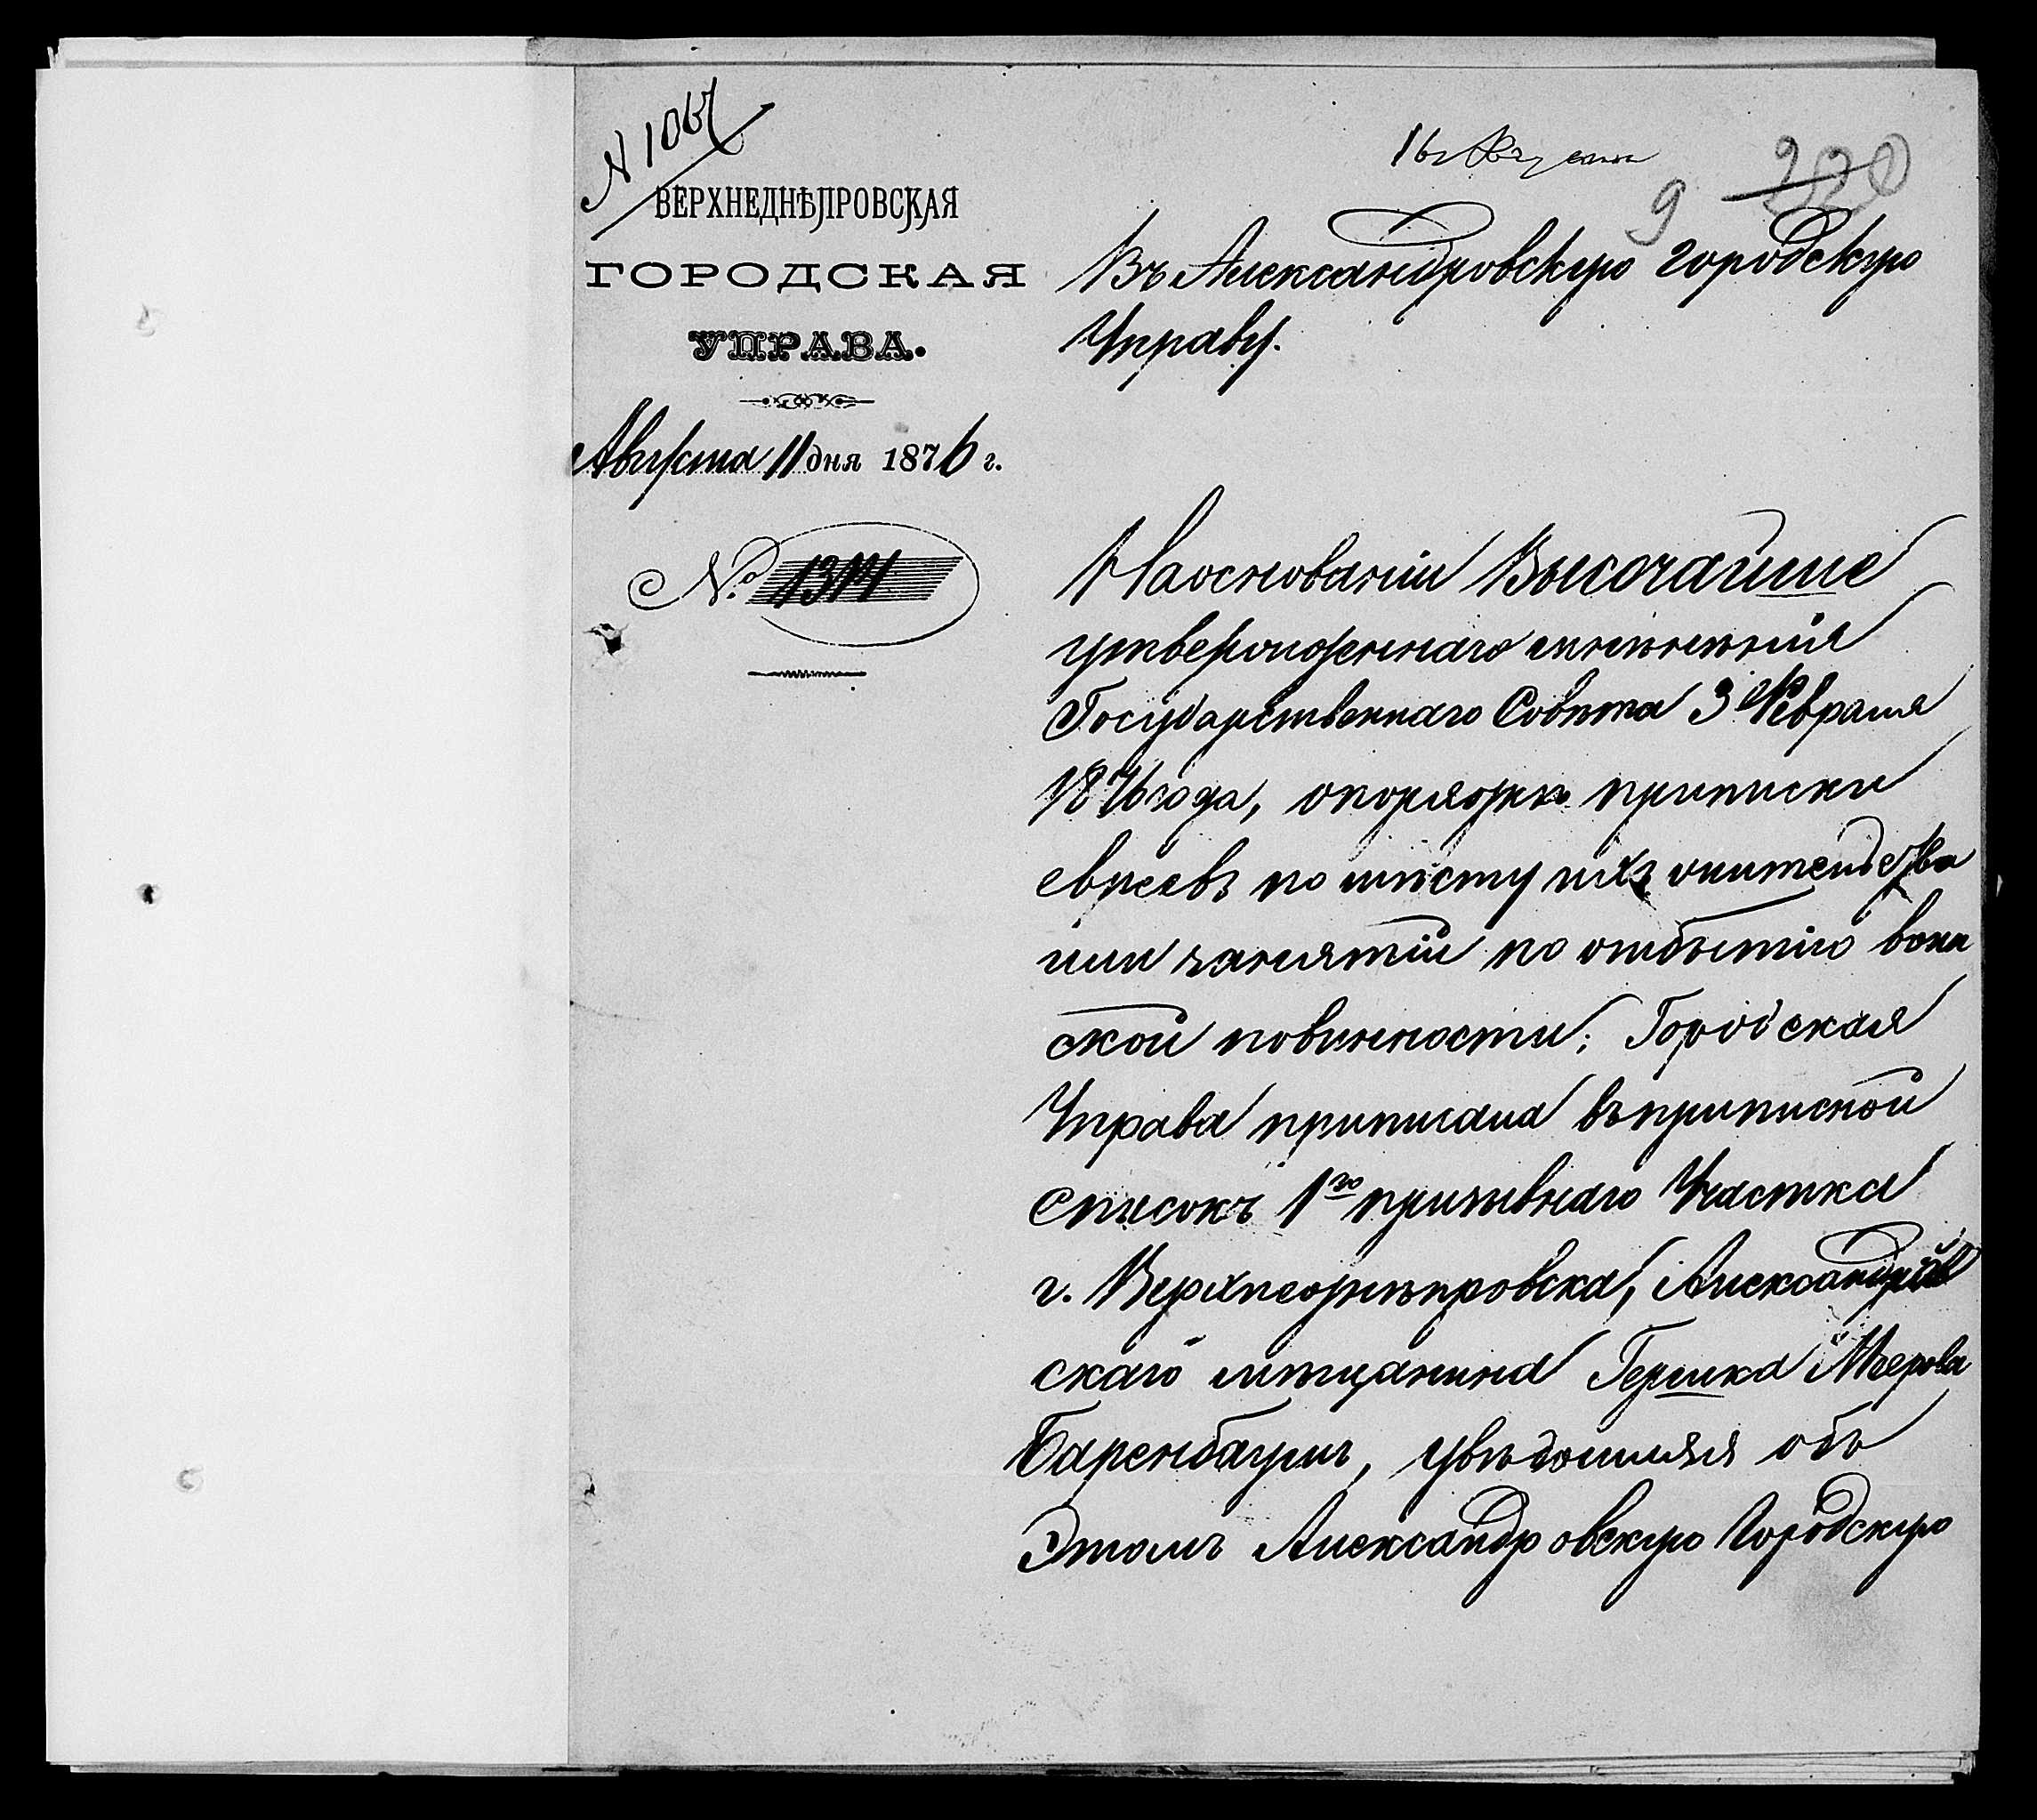 16 Августа
9 220
ВЕРХНЕДНѢПРОВСКАЯ
ГОРОДСКАЯ
УПРАВА.
Августа 11 дня 1876 г.
№
Въ Александровскую городскую
Управу.
На основаніи Высочайше
утвержденнаго мнѣнія
Государственнаго Совѣта 3 Февраля
1876 года, о порядкѣ приписки
евреевъ по мѣсту ихъ жительства
или занятій по отбытію воин
ской повинности; Городская
Управа приписала въ приписной
списокъ 1го призывнаго Участка
г. Верхнеднѣпровска,
скаго мѣщанина Гершка Меерова
Баренбаумъ, увѣдомляя объ
Этомъ Александровскую Городскую